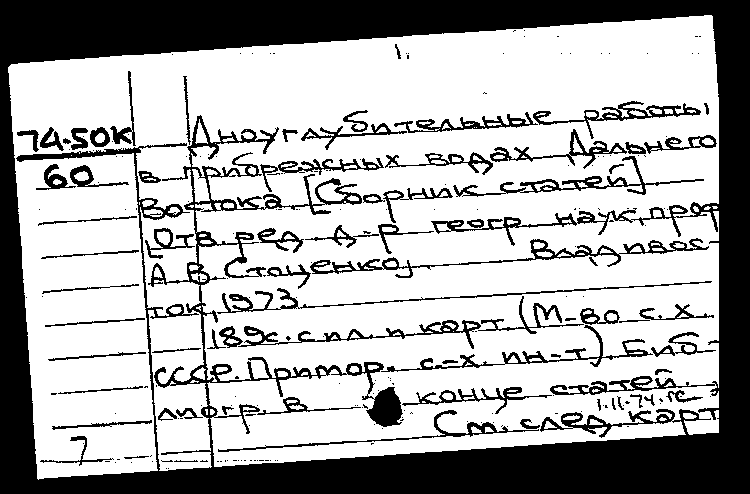 1.
74-50К
60
Дноуглубительные работы
в прибрежных водах Дальнего
Востока. [Сборник статей].
[Отв. ред. д-р геогр. наук, проф.
А. В. Стаценко]. Владивос-
ток, 1973.
189с. с ил. и карт. (М-во с. х.
СССР. Примор. с.-х. ин-т). Биб-
лиогр. в конце статей.
1.11.74.
См. след карт
7